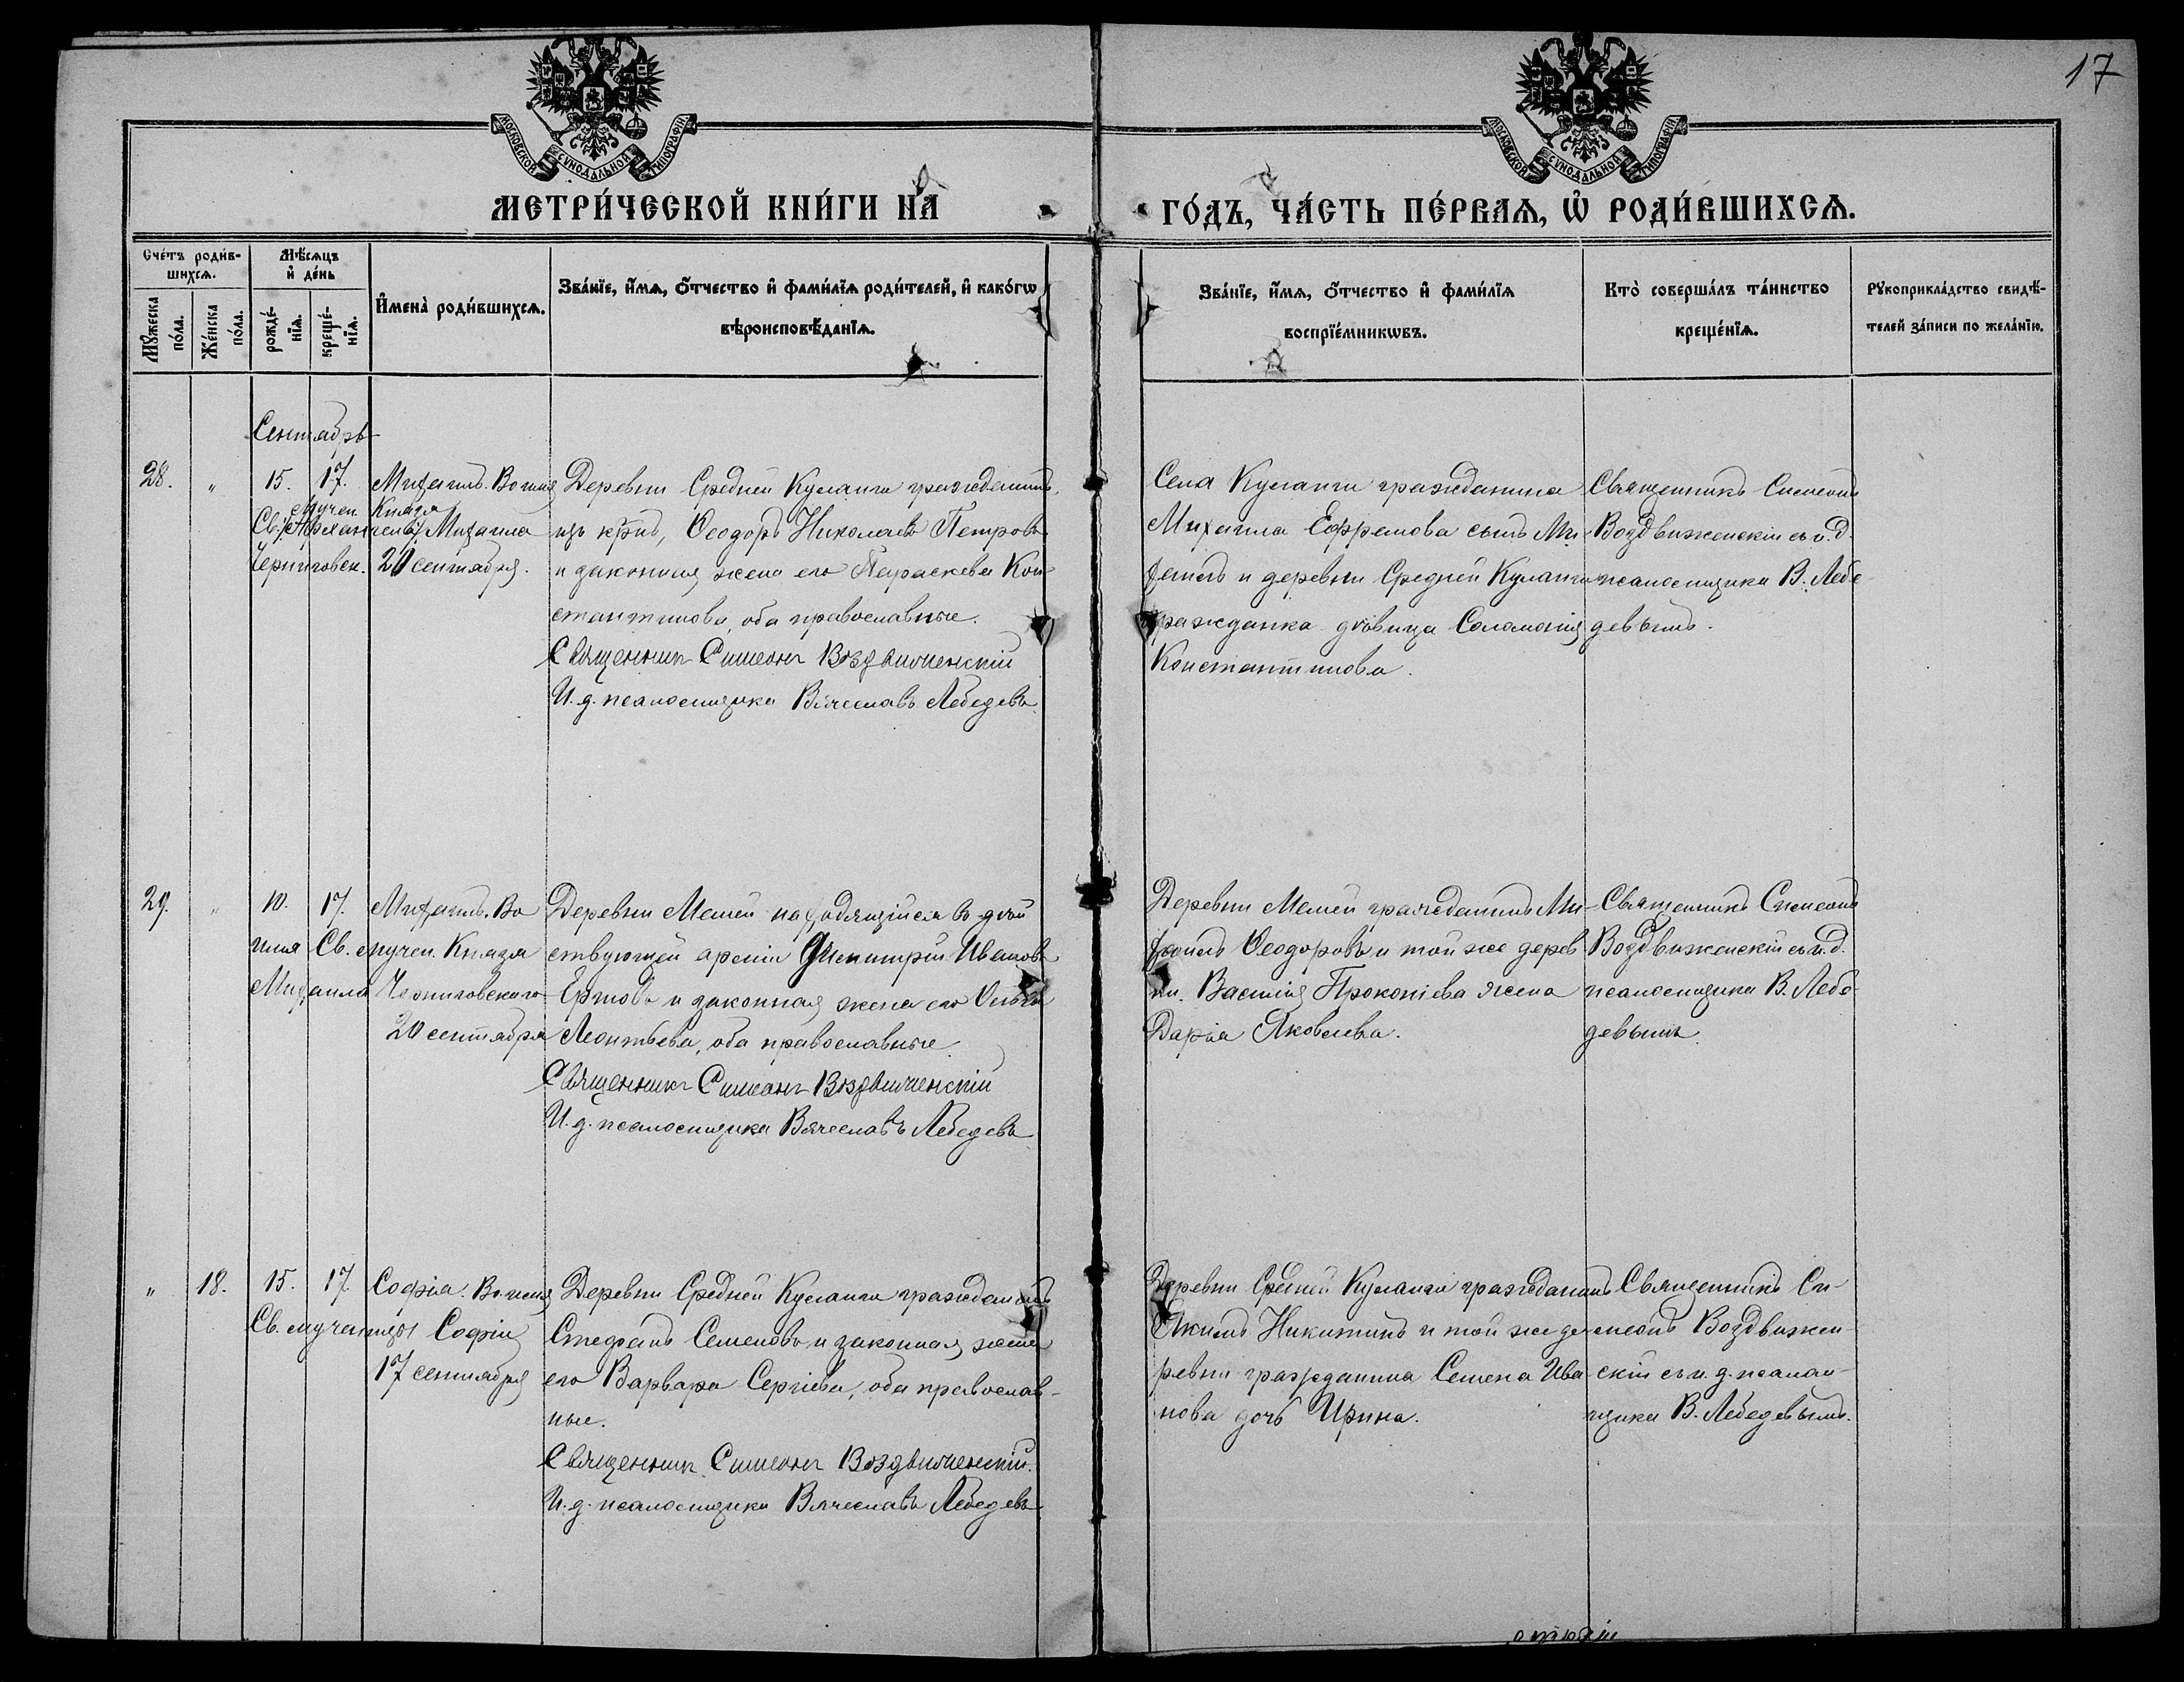 17
МОСКОВСКОЙ СѴНОДАЛЬНОЙ ТИПОГРАФІИ
МОСКОВСКОЙ СѴНОДАЛЬНОЙ ТИПОГРАФІИ
МЕТРИ́ЧЕСКОЙ КНИ́ГИ НА
ГО́ДЪ, ЧА́СТЬ ПЕ́РВАѦ, Ѡ҆ РОДИ́ВШИХСѦ.
Сче́тъ роди́в-
шихсѧ.
Мѣ́сѧцъ
и҆ де́нь
Мꙋ́жеска
по́ла.
Же́нска
по́ла.
рожде́-
нїѧ.
креще́-
нїѧ.
И҆мена̀ роди́вшихсѧ.
Зва́нїе, и҆́мѧ, ѻ҆́тчество и҆ фами́лїѧ роди́телей, и҆ како́гѡ
вѣроисповѣ́данїѧ.
Зва́нїе, и҆́мѧ, ѻ҆́тчество и҆ фами́лїѧ
воспрїе́мникѡвъ.
Кто̀ соверша́лъ та́инство
креще́нїѧ.
Рꙋкоприкла́дство свидѣ́-
телей за́писи по жела́нїю.
Сентябрь
28. „ 15. 17. Михаилъ. Во имя
мучен. Князя
Св. Михаила
Черниговск. 20 сентября.
Деревни Средней Куланги гражданинъ,
изъ Ѳеодоръ Николаевъ Петровъ
и законная жена его Параскева Кон-
стантинова, оба православные.
Священникъ Симеонъ Воздвиженскій
И. д. псаломщика Вячеславъ Лебедевъ
Села Куланги гражданина
Михаила Ефремова сынъ Ми-
хаилъ и деревни Средней Куланги
гражданка дѣвица Соломонія
Константинова.
Священникъ Симеонъ
Воздвиженскій съ и. д.
псаломщика В. Лебе-
девымъ.
29. „ 10. 17. Михаилъ. Во
имя Св. мучен. Князя
Михаила Черниговскаго
20 сентября
Деревни Мемей находящійся въ дѣй
ствующей арміи Димитрій Ивановъ
Ершовъ и законная жена его Ольга
Леонтьева, оба православные.
Священникъ Симеонъ Воздвиженскій
И. д. псаломщика Вячеславъ Лебедевъ
Деревни Мемей гражданинъ Ми-
хаилъ Ѳеодоровъ и той же дерев
ни Василія Прокопіева жена
Дарія Яковлева.
Священникъ Симеонъ
Воздвиженскій съ и. д.
псаломщика В. Лебе-
девымъ.
„ 18. 15. 17. Софія. Во имя
Св. мученицы Софіи
17 сентября
Деревни Средней Куланги гражданинъ
Стефанъ Семеновъ и законная жена
его Варвара Сергіева, оба православ-
ные.
Священникъ Симеонъ Воздвиженскій.
И. д. псаломщика Вячеславъ Лебедевъ
Деревни Средней Куланги гражданинъ
Акимъ Никитинъ и той же де-
ревни гражданина Семена Ива-
нова дочь Ирина.
Священникъ Си-
меонъ Воздвижен-
скій съ и. д. псалом-
щика В. Лебедевымъ.